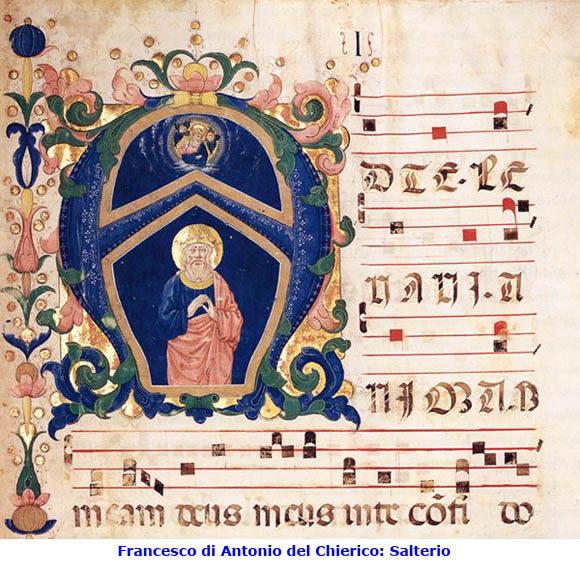 I
AD TE·LE
VAVI·A
NIMAM
meam deus meus in te cōfi do
Francesco di Antonio del Chierico: Salterio